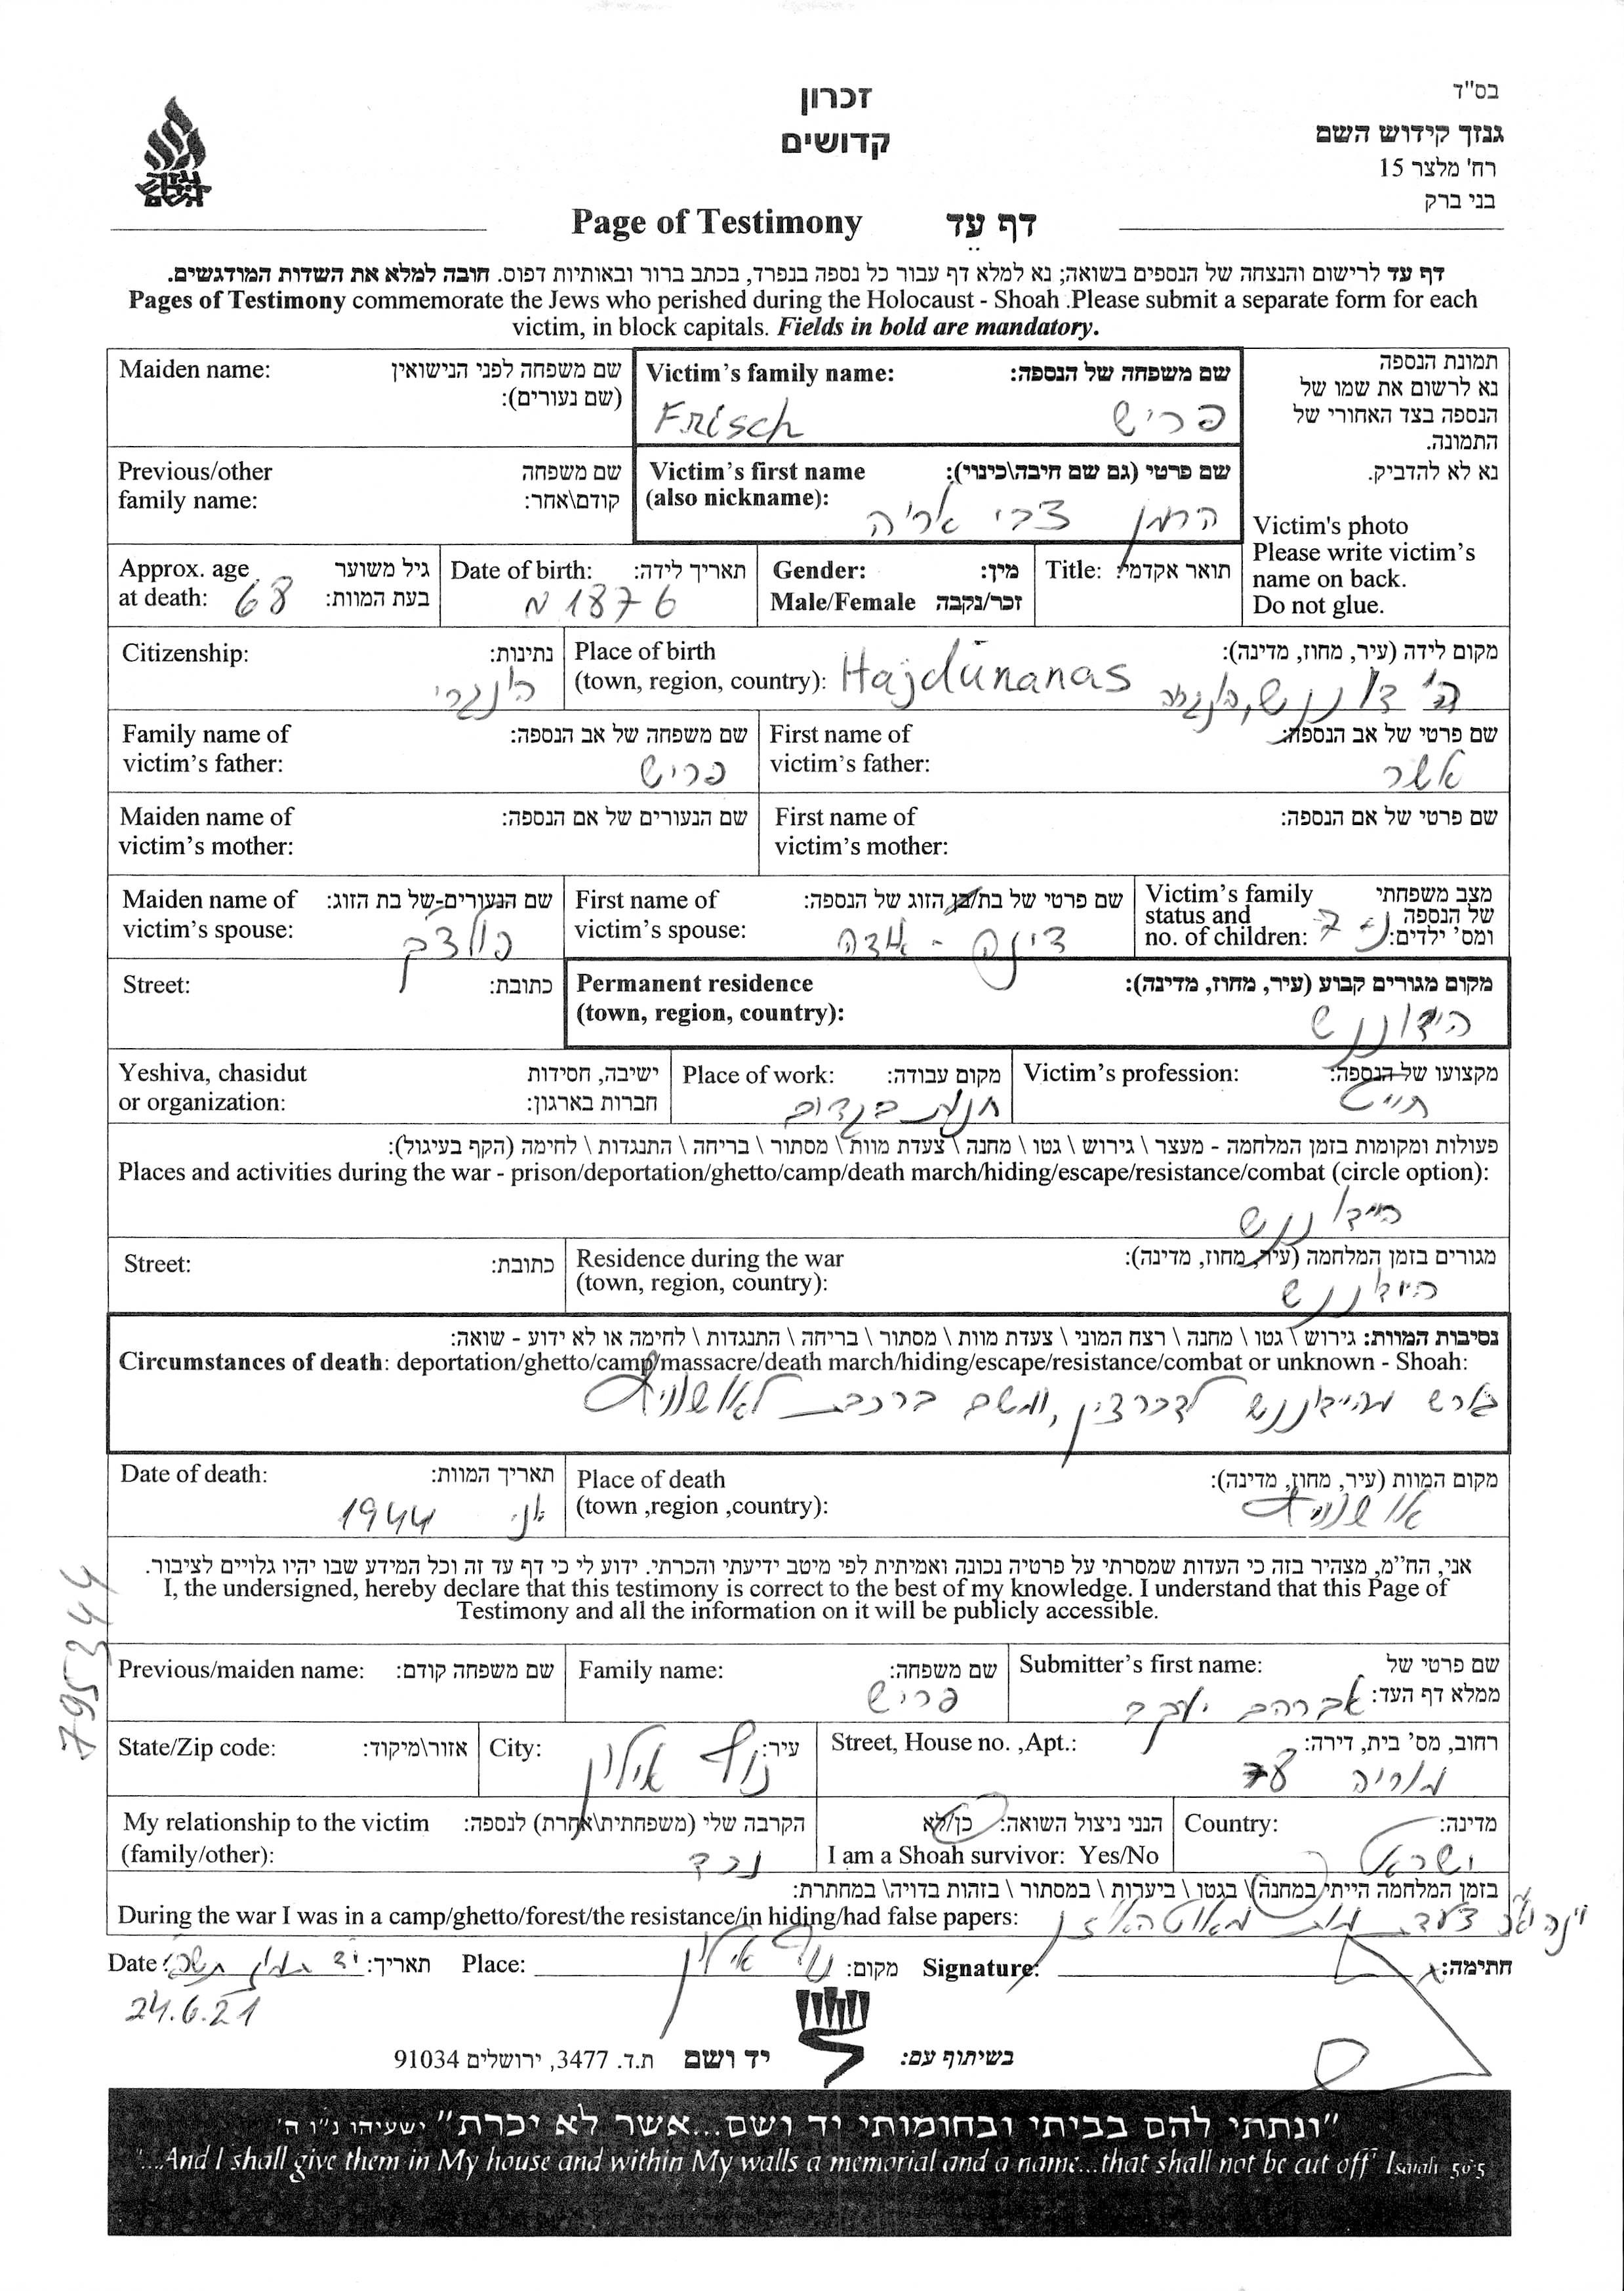 בס"ד
גנזך קידוש השם
רח' מלצר 15
בני ברק
זכרון
קדושים
גנזך
קידוש
השם
Page of Testimony דף עד
דף עד לרישום והנצחה של הנספים בשואה; נא למלא דף עבור כל נספה בנפרד, בכתב ברור ובאותיות דפוס. חובה למלא את השדות המודגשים.
Pages of Testimony commemorate the Jews who perished during the Holocaust - Shoah .Please submit a separate form for each
victim, in block capitals. Fields in bold are mandatory.
תמונת הנספה
נא לרשום את שמו של
הנספה בצד האחורי של
התמונה.
נא לא להדביק.
Victim's photo
Please write victim's
name on back.
Do not glue.
Victim's family name: שם משפחה של הנספה:
Frisch פריש
Maiden name: שם משפחה לפני הנישואין
(שם נעורים):
Victim's first name שם פרטי (גם שם חיבה\כינוי):
(also nickname):
הרמן צבי אריה
Previous/other שם משפחה
family name: קודם\אחר:
Title: תואר אקדמי:
Gender: מין:
Male/Female זכר/נקבה
Date of birth: תאריך לידה:
1876
Approx. age גיל משוער
at death: 68 בעת המוות:
Place of birth מקום לידה (עיר, מחוז, מדינה):
(town, region, country): Hajdūnanas
Citizenship: נתינות:
הונגרי
First name of שם פרטי של אב הנספה:
victim's father: אשר
Family name of שם משפחה של אב הנספה:
victim's father: פריש
First name of שם פרטי של אם הנספה:
victim's mother:
Maiden name of שם הנעורים של אם הנספה:
victim's mother:
Victim's family מצב משפחתי
status and של הנספה
no. of children: 7 נ- ומס' ילדים:
First name of שם פרטי של בת/בן הזוג של הנספה:
victim's spouse: דינה -
Maiden name of שם הנעורים של בת הזוג:
victim's spouse:
Permanent residence מקום מגורים קבוע (עיר, מחוז, מדינה):
(town, region, country):
הידוננש
Street: כתובת:
Victim's profession: מקצועו של הנספה:
חייט
Place of work: מקום עבודה:
חנות בגדים
Yeshiva, chasidut ישיבה, חסידות
or organization: חברות בארגון:
פעולות ומקומות בזמן המלחמה - מעצר \ גירוש \ גטו \ מחנה \ צעדת מוות \ מסתור \ בריחה \ התנגדות \ לחימה (הקף בעיגול):
Places and activities during the war - prison/deportation/ghetto/camp/death march/hiding/escape/resistance/combat (circle option):
היידוננש
Residence during the war מגורים בזמן המלחמה (עיר, מחוז, מדינה):
(town, region, country):
היידוננש
Street: כתובת:
נסיבות המוות: גירוש \ גטו \ מחנה \ רצח המוני \ צעדת מוות \ מסתור \ בריחה \ התנגדות \ לחימה או לא ידוע - שואה:
Circumstances of death: deportation/ghetto/camp/massacre/death march/hiding/escape/resistance/combat or unknown - Shoah:
גורש מהיידוננש לדברצין, ומשם ברכבת לאושוויץ
Place of death מקום המוות (עיר, מחוז, מדינה):
(town ,region ,country): אושוויץ
Date of death: תאריך המוות:
1944
אני, הח"מ, מצהיר בזה כי העדות שמסרתי על פרטיה נכונה ואמיתית לפי מיטב ידיעתי והכרתי. ידוע לי כי דף עד זה וכל המידע שבו יהיו גלויים לציבור.
I, the undersigned, hereby declare that this testimony is correct to the best of my knowledge. I understand that this Page of
Testimony and all the information on it will be publicly accessible.
795344
Submitter's first name: שם פרטי של
ממלא דף העד: אברהם יעקב
Family name: שם משפחה:
פריש
Previous/maiden name: שם משפחה קודם:
Street, House no. ,Apt.: רחוב, מס' בית, דירה:
מוריה
City: עיר: נוף אילון
State/Zip code: אזור\מיקוד:
Country: מדינה:
ישראל
הנני ניצול השואה: כן/לא
I am a Shoah survivor: Yes/No
My relationship to the victim הקרבה שלי (משפחתית\אחרת) לנספה:
(family/other): נכד
בזמן המלחמה הייתי במחנה\ בגטו \ ביערות \ במסתור \ בזהות בדויה\ במחתרת:
During the war I was in a camp/ghetto/forest/the resistance/in hiding/had false papers: צעדת מות מאוטהאוזן
Date: יד תמוז תאריך: Place: נוף אילון מקום: Signature: חתימה:
24.6.21
בשיתוף עם: יד ושם ת.ד. 3477, ירושלים 91034
"ונתתי להם בביתי ובחומותי יד ושם...אשר לא יכרת" ישעיהו נ"ו ה'
"...And I shall give them in My house and within My walls a memorial and a name...that shall not be cut off" Isaiah 56:5